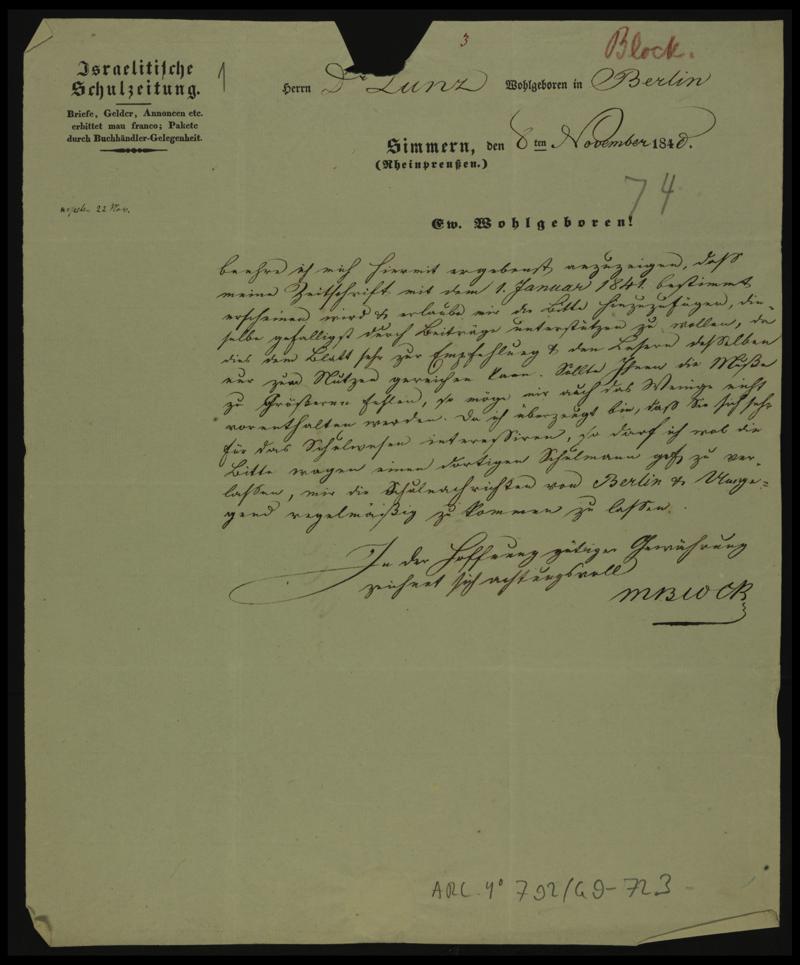 Israelitische
Schulzeitung.
Briefe, Gelder, Annoncen etc.
erbittet man franco; Pakete
durch Buchhändler-Gelegenheit.
1
3
Block.
Herrn Dr Zunz Wohlgeboren in Berlin
Simmern, den 8ten November 1840.
(Rheinpreußen.)
22 Nov.
74
Ew. Wohlgeboren!
beehre ich mich hiermit ergebenst anzuzeigen, daß
meine Zeitschrift mit dem 1. Januar 1841. bestimmt
erscheinen wird & erlaube mir die Bitte hinzuzufügen, die-
selbe gefälligst durch Beiträge unterstützen zu wollen, da
dies dem Blatt sehr zur Empfehlung & den Lesern desselben
nur zum Nutzen gereichen kann. Sollte Ihnen die Muße
zu Größerem fehlen, so möge mir auch das Wenige nicht
vorenthalten werden. Da ich überzeugt bin, daß Sie sich sehr
für das Schulwesen interessiren, so darf ich wol die
Bitte wagen einen dortigen Schulmann gefl. zu ver-
lassen, mir die Schulnachrichten von Berlin & Umge=
gend regelmäßig zu kommen zu lassen.
In der Hoffnung gütiger Gewährung
zeichnet sich achtungsvoll
MBlock
ARC. 4° 792/G9-723